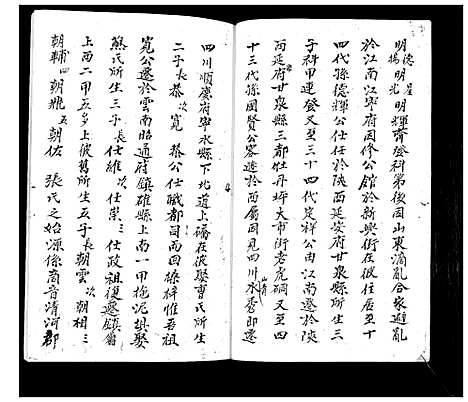 明德 星明輝齊登科第後因山東滴亂合家避亂
明揚 明光
於江南江寧府因修公館於新興街在彼住居至十
四代孫德輝公仕任於陝西延安府甘泉縣所生三
子科甲連登又至三十四代定祥公由江南遷於陝
西延府甘泉縣三都牡丹坪大市街老虎硐又至
十三代孫國賢公客遊於西屬因見四川山清水秀即遷
四川順慶府寧水縣下北道上磻在彼娶曹氏所生
二子長恭次寬 恭公仕職都司而回條梓惟吾祖
寬公遷於雲南昭通府鎮雄縣上南一甲拖泥填娶
熊氏所生三子長仕維次仕崇三仕政祖復遷鎮屬
上西二甲五多上彼舊所生五子長朝雲次朝相三
朝輔四朝兆五朝佐 張氏之始源係商音清河郡